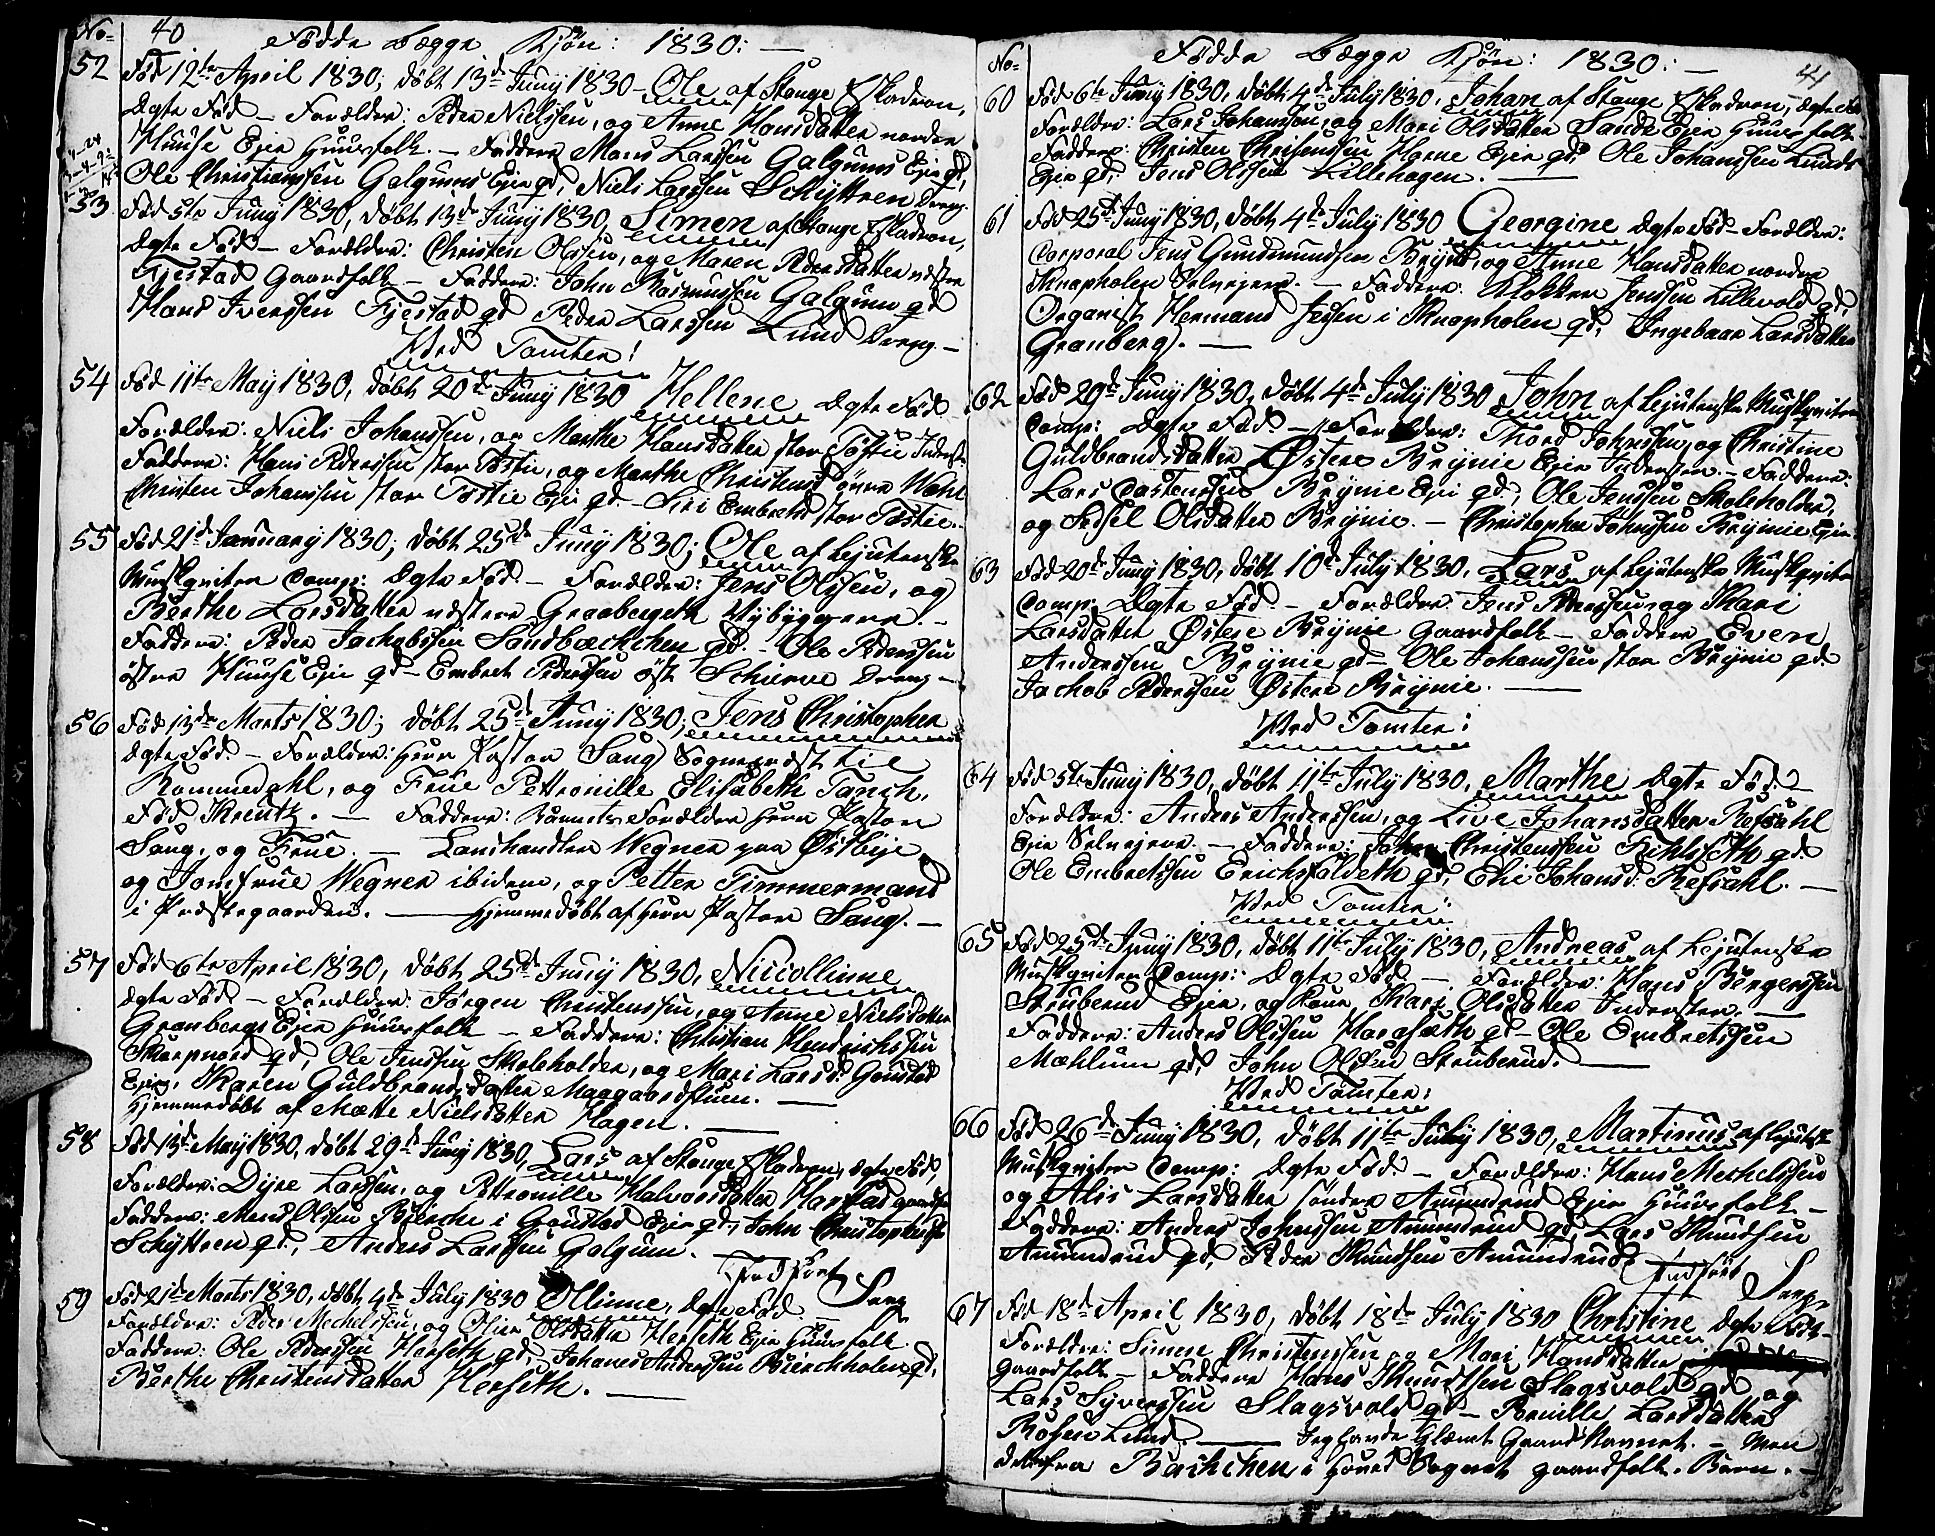 No= 40 Fødde begge Kjøn: 1830: —
52 Fød 12te April 1830; døbt 13de Juny 1830 – Ole af Stange Eskadron,
ægte Fød – Forældre: Peder Nielssen, og Anne Hansdatter nordre
Huuse Eje Huusfolk. – Faddere Mons Larssen Galgums Eje gd,
Ole Christianssen Galgums Eje gd, Niels Larssen Schyttren dreng.
53 Fød 5te Juny 1830, døbt 13de Juny 1830, Simen af Stange Eskadron,
ægte Fød – Forældre: Christen Olssen, og Maren Pedersdatter
Tjestad Gaardfolk – Faddere: John Rasmussen Galgum gd
Hans Iverssen Tjestad gd Peder Larssen Lund dreng. –
Ved Tomter:
54 Fød 11te May 1830, døbt 20de Juny 1830 Hellene ægte Fød
Forældre: Niels Johanssen, og Marthe Hansdatter stor Tøstie
Faddere: Hans Pederssen stor Tøstie, og Marthe Christensd øvre
Christen Johanssen stor Tostie Eje gd. – Siri Embretsd stor Tostie.
55 Fød 21de January 1830; døbt 25de Juny 1830; Ole af Lejutenske
Musqviteer Comp: ægte Fød – Forældre: Jens Olssen, og
Berthe Larsdatter vestere Graabergeth Nybyggere. –
Faddere: Peder Jachobssen Sandbæchchen gd. – Ole Pederssen
østre Huuse Eje gd – Embret Pederssen øst Schierve dreng –
56 Fød 13de Marts 1830; døbt 25de Juny 1830; Jens Christopher
ægte Fød. – Forældre: Herr Pastor Saug Sognepræst til
Rommedahl, og Frue Petronille Elisabeth Tanch,
Fød Kreutz. — Faddere: Barnets Forældre Herr Pastor
Saug, og Frue. — Landhandler Wegner paa Østbye
og Jomfrue Wegner ibidem, og Petter Timmermand
i Præstegaarden. — Hjemmedøbt af Herr Pastor Saug. –
57 Fød 6te April 1830, døbt 25de Juny 1830, Niccollinne
ægte Fød – Forældre: Jørgen Christenssen, og Anne Nielsdatter
Granbergs Eje Huusfolk – Faddere: Christian Hendrichssen
Skarpnoed gd, Ole Jenssen Skoleholder, og Mari Larsd: Gaustad
Eje, Karen Guldbrandsdatter Maagaardstuen. —
Hjemmedøbt af Mætte Nielsdatter Hagen. —
58 Fød 13de May 1830, døbt 29de Juny 1830, Lars af Stange Eskadron, ægte Fød,
Forældre: Dyre Larssen, og Petronille Halvorsdatter Harstad
Faddere: Mons Olssen Bierche i Gaustad Eje gd, John Christophers
Schyttren gd, Anders Larssen Galgum. —
Indført Saug
59 Fød 21de Marts 1830, døbt 4de July 1830 Ollinne, ægte Fød
Forældre: Peder Mechelssen, og Oline Olsdatter Herseth Eje Huusfolk
Faddere: Ole Pederssen Herseth gd, Johanes Anderssen Bierchholen gd,
Berthe Christensdatter Herseth. —
No= Fødde begge Kjøn: 1830: — 41
60 Fød 6te Juny 1830, døbt 4de July 1830, Johan af Stange Eskadron, ægte Fød
Forældre: Lars Johanssen, og Mari Olsdatter Sande Eje Huusfolk –
Faddere: Christen Christenssen Horne Eje gd, Ole Johanssen Lunds
Eje gd, Jens Olssen Lillehagen. —
61 Fød 25de Juny 1830, døbt 4de July 1830 Georgine ægte Fød – Forældre:
Corporal Jens Gundmundsen Brynd, og Anne Hansdatter nordre
Knapholen Selvejere. – Faddere: Klokker Jenssen Lillevold gd,
Organist Hermand Jessen i Knapholen gd, Ingebaar Larsdatter
Granberg. —
62 Fød 29de Juny 1830, døbt 4de July 1830 John af Lejutenske Musqviteer
Comp: ægte Fød – Forældre: Thord Johnssen, og Christine
Guldbrandsdatter Østere Brynie Eje Inderster. – Faddere:
Lars Castenssen Brynie Eje gd, Ole Jenssen Skoleholder,
og Sedsel Olsdatter Brynie. – Christopher Johnssen Brynie Eje
63 Fød 20de Juny 1830, døbt 10de July 1830, Lars af Lejutenske Musqviteer
Comp: ægte Fød – Forældre: Jens Pederssen, og Kari
Larsdatter Østere Brynie Gaardfolk – Faddere Even
Anderssen Brynie gd – Ole Johanssen stor Brynie gd
Jachob Pederssen Østere Brynie. —
Ved Tomter:
64 Fød 5te Juny 1830, døbt 11te July 1830, Marthe ægte Fød. –
Forældre: Anders Anderssen, og Live Johansdatter Refsahl
Eje Selvejere. – Faddere: Johan Christenssen Fihlseth gd
Ole Embretssen Erichsfoldeth gd, Eli Johansd: Refsahl. —
Ved Tomter:
65 Fød 25de Juny 1830, døbt 11te July 1830, Andreas af Lejutenske
Musqviteer Comp: ægte Fød – Forældre: Hans Bergerssen
Struberud Eje, og Kone Kari Olsdatter Inderster. —
Faddere: Anders Olssen Harasæth gd – Ole Embretssen
Mæhlum gd, John Olssen Struberud. —
Ved Tomter:
66 Fød 26de Juny 1830, døbt 11te July 1830, Martinus af Lejutske
Musqviteer Comp: ægte Fød – Forældre: Hans Mechelssen
og Alis Larsdatter søndre Amundrud Eje Huusfolk –
Faddere: Anders Johnssen Amundrud gd Lars Knudssen
Amundrud gd, Peder Knudssen Amundrud.
Indført Saug
67 Fød 18de April 1830, døbt 18de July 1830 Christine ægte Fød –
Forældre: Simen Christenssen og Mari Hansdatter
Gaardfolk – Faddere Hans Knudtsen Slagsvold gd, og
Lars Syverssen Slagsvold gd – Pernille Larsdatter
Rosen Lund. — Jeg havde Glæmt Gaards Navnet. – Men
det er fra Bachchen i Hoved Sognet gaardfolk. Barn. –